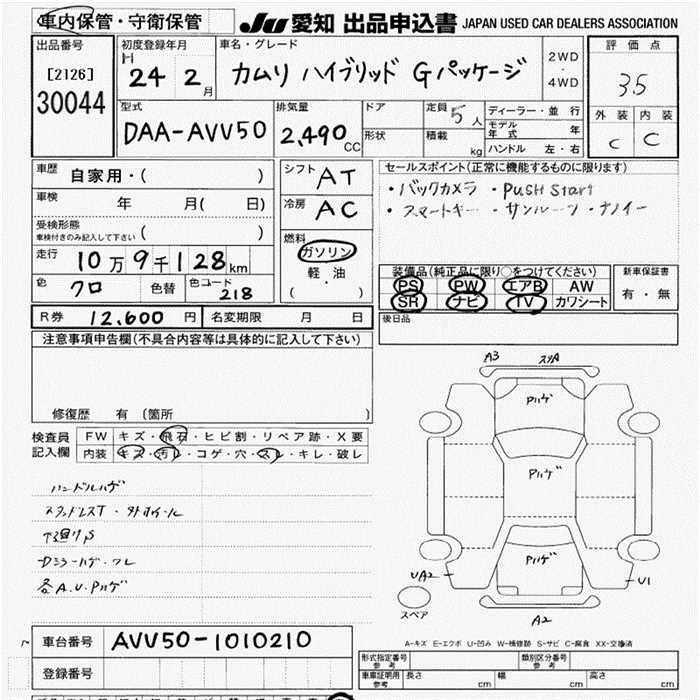 車内保管・守衛保管 JU 愛知 出品申込書 JAPAN USED CAR DEALERS ASSOCIATION
出品番号
[2126]
30044
初度登録年月
H 24 2 月
車名・グレード
カムリ ハイブリッド Gパッケージ
2WD
・
4WD
評価点
3.5
外装 内装
C C
型式
DAA-AVV50
排気量
2,490 CC
ドア
形状
定員 5 人
積載 kg
ディーラー・並行
モデル年式 年
ハンドル 左・右
車歴 自家用・( )
車検 年 月( 日)
受検形態
車検付きのみ記入して下さい ( )
走行 10万9千128km
色 クロ 色替 色コード 218
シフト AT
冷房 AC
燃料
ガソリン
軽・油
( )
セールスポイント(正常に機能するものに限ります)
・バックカメラ ・PUSH Start
・スマートキー ・サンルーフ・ナノイー
装備品(純正品に限り○をつけてください)
PS PW エアB AW
SR ナビ TV カワシート
新車保証書
有・無
R券 12,600 円 名変期限 月 日
後日品
注意事項申告欄(不具合内容等は具体的に記入して下さい)
修復歴 有 〔箇所 〕
検査員記入欄
FW キズ・飛石・ヒビ割・リペア跡・X要
内装 キズ・汚レ・コゲ・穴・スレ・キレ・破レ
ハンドルハゲ
各A.U.Pハゲ
A3 スリA
Pハゲ
Pハゲ
Pハゲ
UA2 U1
スペア
A2
A-キズ E-エクボ U-凹み W-補修跡 S-サビ C-腐食 XX-交換済
車台番号 AVV50-1010210
登録番号
形式指定番号 参考
類別区分番号 参考
車庫証明用 参考 長さ cm 幅 cm 高さ cm